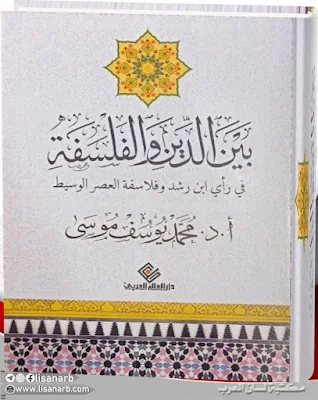 بَيْنَ الدِّينِ وَالْفَلْسَفَةِ
في رأي ابن رشد وفلاسفة العصر الوسيط
أ.د. مُحَمَّد يُوسُف مُوسَى
دار العالم العربي
lisanarb
www.lisanarb.com
مكتبة لسان العرب